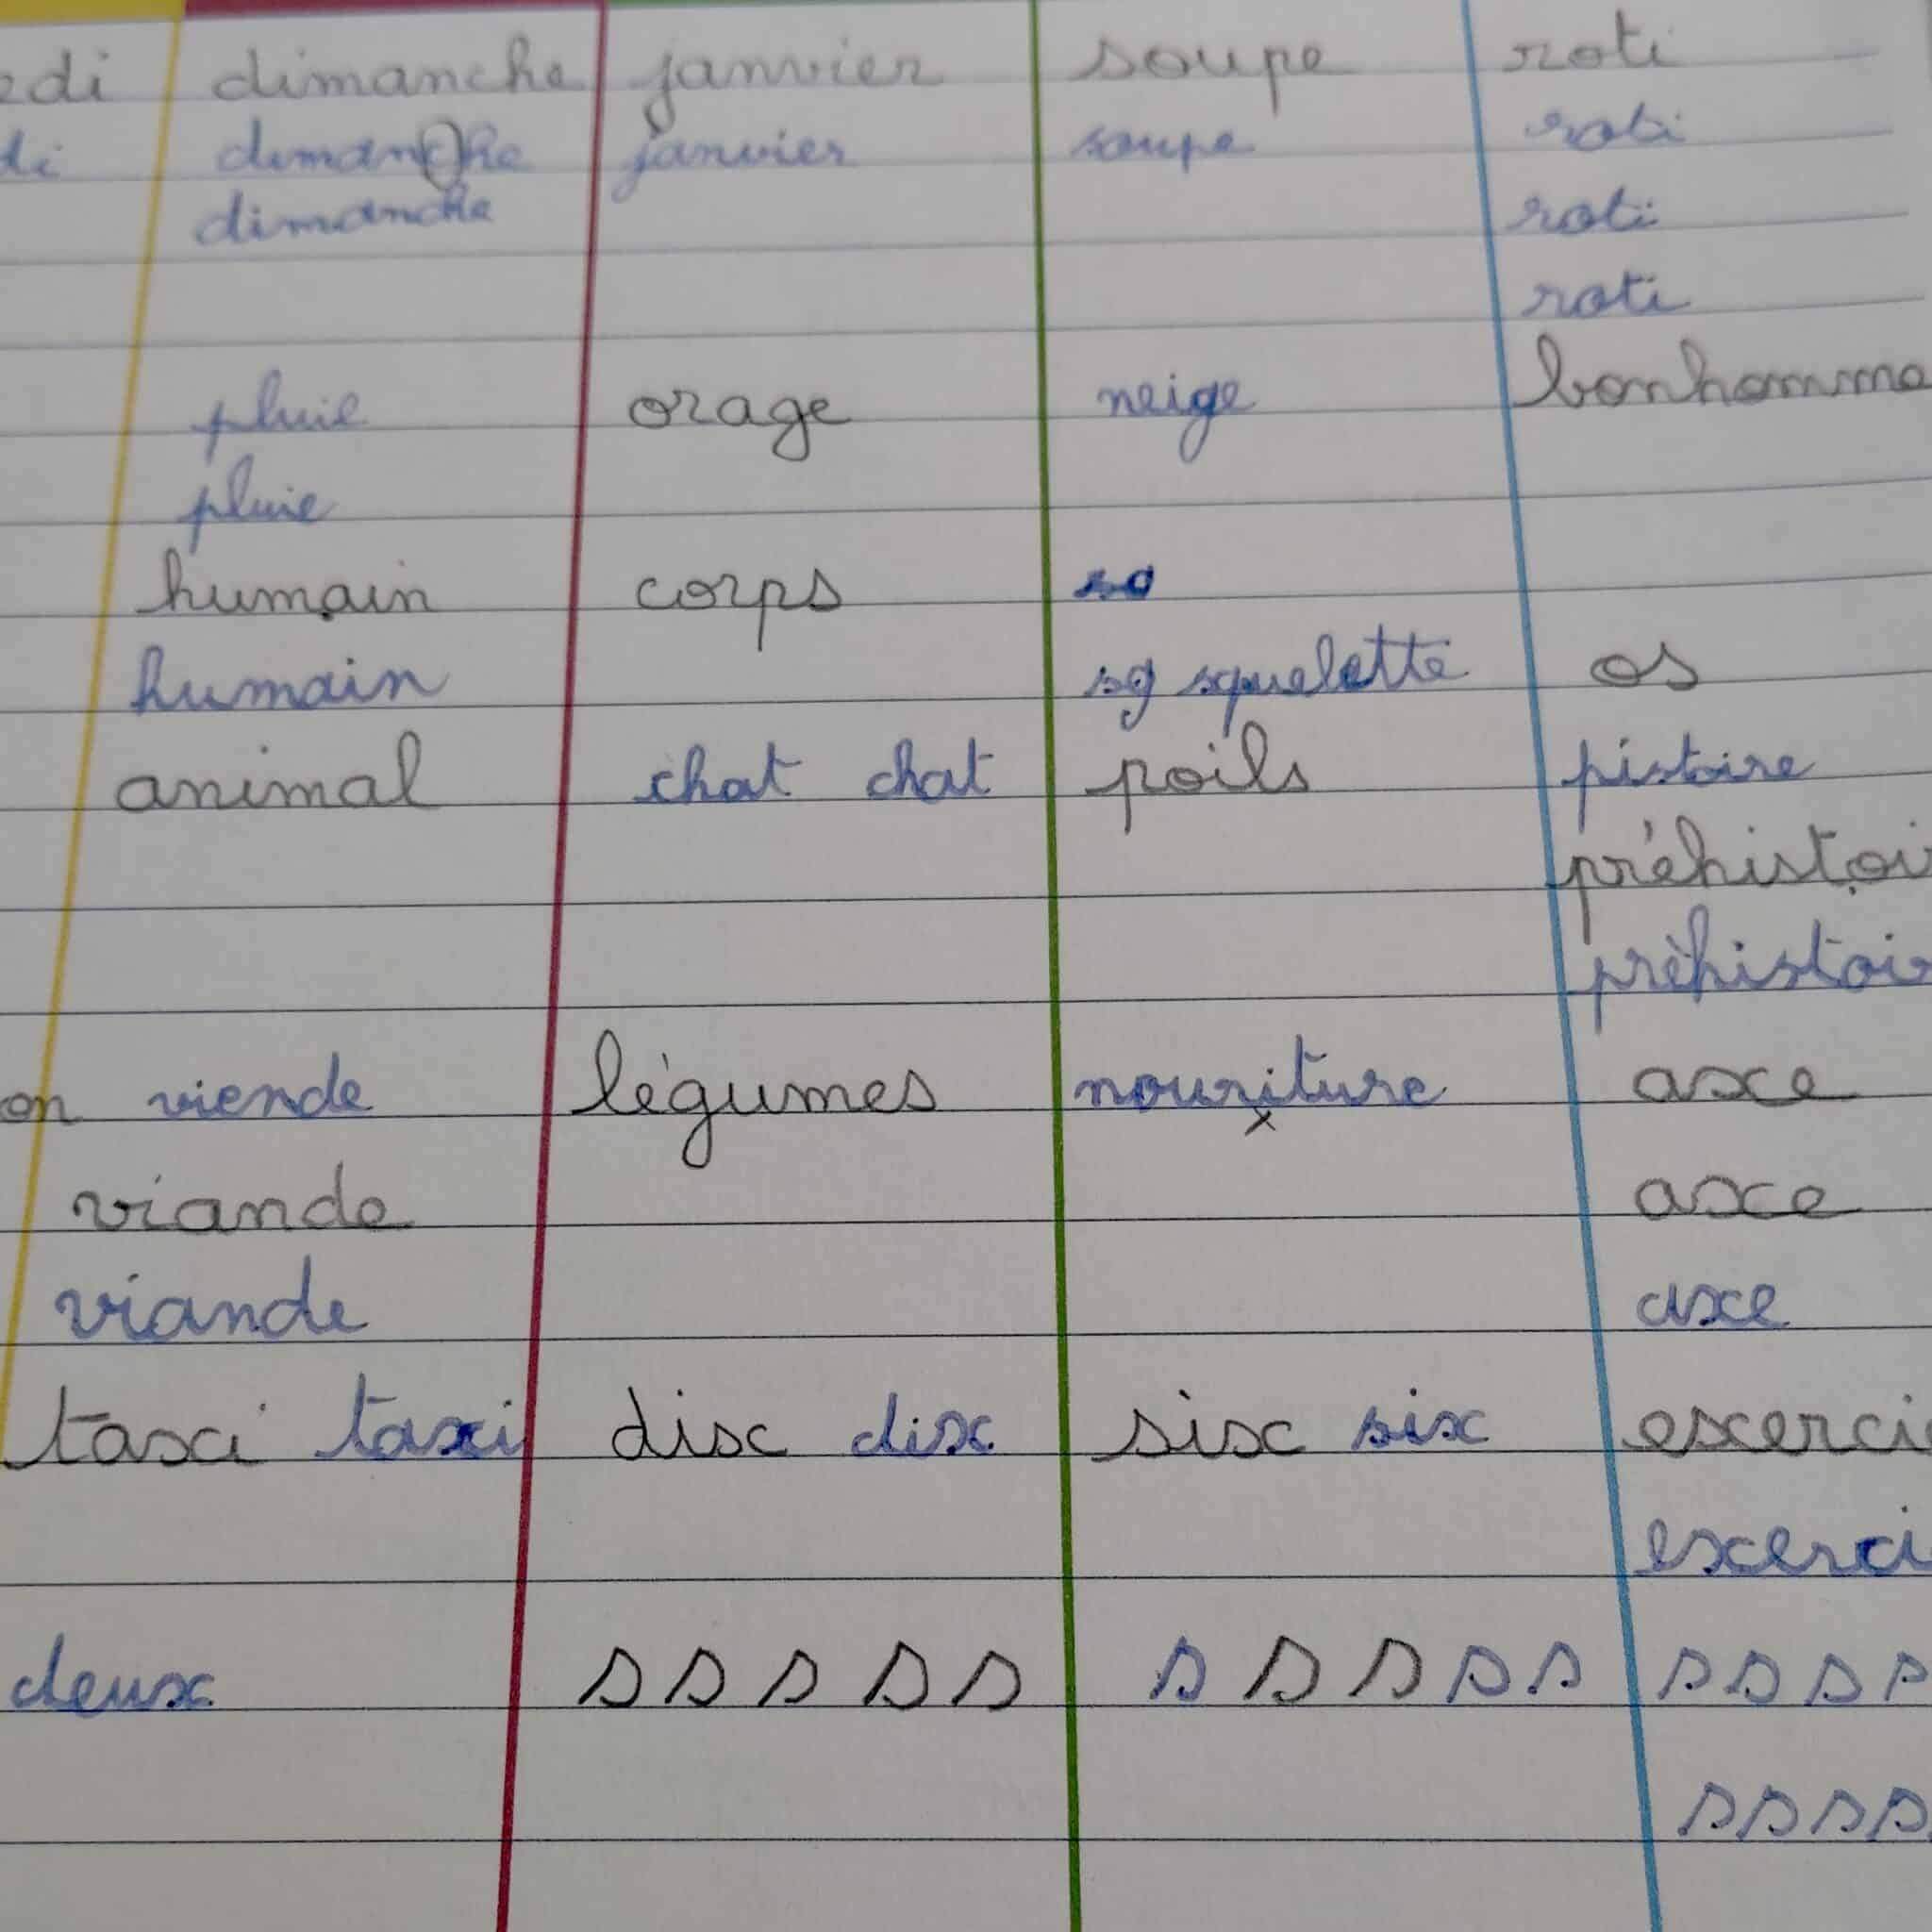 edi dimanche janvier soupe roti
di dimanche janvier soupe roti
dimanche roti
roti
pluie orage neige bonhomme
pluie
humain corps sq
humain sq squelette os
animal chat chat poils pistoire
préhistoi
préhistoir
on viende légumes nouriture axe
viande axe
viande axe
taxi taxi dix dix six six exerci
exerci
deux s s s s s s s s s s s s s s
s s s s